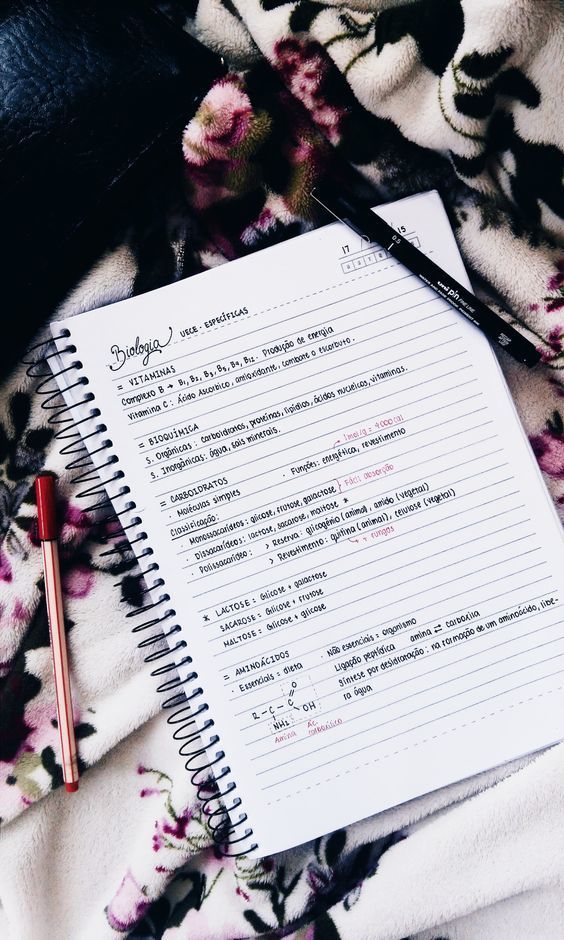 17 15
Biologia UECE - ESPECÍFICAS
= VITAMINAS
Complexo B → B1, B2, B3, B5, B9, B12. Produção de energia
Vitamina C: Ácido Ascorbico, antioxidante, combate o escorbuto.
= BIOQUÍMICA
S. Orgânicas: carboidratos, proteínas, lipídios, ácidos nucleicos, vitaminas.
S. Inorgânicas: água, sais minerais.
→ 1mol/g = 4000cal
= CARBOIDRATOS · Funções: energética, revestimento
· Moléculas simples
Classificação:
· Monossacarídeos: glicose, frutose, galactose } Fácil absorção
· Dissacarídeos: lactose, sacarose, maltose *
· Polissacarídeo: > Reserva: glicogênio (animal, amido (vegetal)
> Revestimento: quitina (animal), celulose (vegetal)
+ fungos
* LACTOSE = Glicose + galactose
SACAROSE = Glicose + frutose
MALTOSE = Glicose + glicose
= AMINOÁCIDOS · Não essenciais = organismo
· Essenciais = dieta · Ligação peptídica amina ⇄ carboxila
Síntese por desidratação: na formação de um aminoácido, libe-
ra água
O
R - C - C
OH
NH2
Amina Ác.
carboxílico
uni pin FINE LINE
0.5